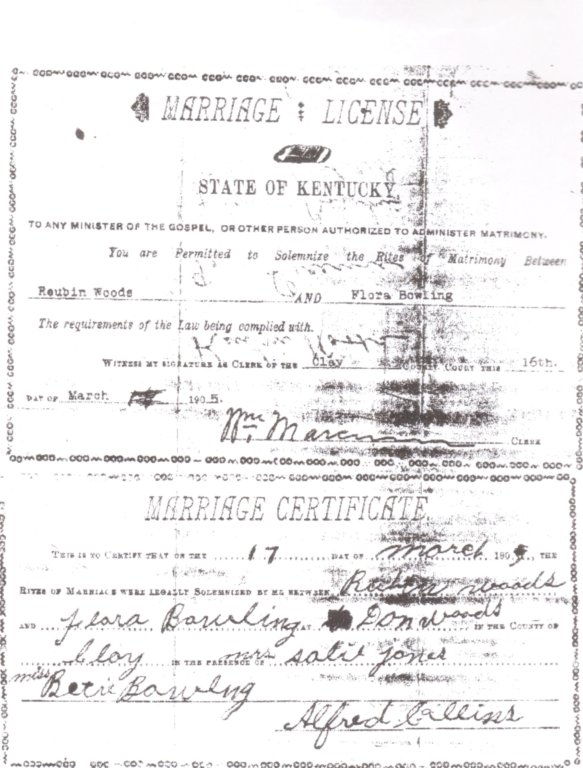 MARRIAGE : LICENSE
STATE OF KENTUCKY,
TO ANY MINISTER OF THE GOSPEL, OR OTHER PERSON AUTHORIZED TO ADMINISTER MATRIMONY.
You are Permitted to Solemnize the Rites of Matrimony Between
Reubin Woods AND Flora Bowling
The requirements of the Law being complied with.
WITNESS MY SIGNATURE AS CLERK OF THE Clay COUNTY COURT THIS 16th.
DAY OF March 1905.
Wm. Marcum CLERK
MARRIAGE CERTIFICATE
THIS IS TO CERTIFY THAT ON THE 17 DAY OF march 1905, THE
RITES OF MARRIAGE WERE LEGALLY SOLEMNIZED BY ME BETWEEN Reuben woods
AND flora Bowling AT Don woods IN THE COUNTY OF
Clay IN THE PRESENCE OF mrs Jones
miss Bowlng
Alfred Collins